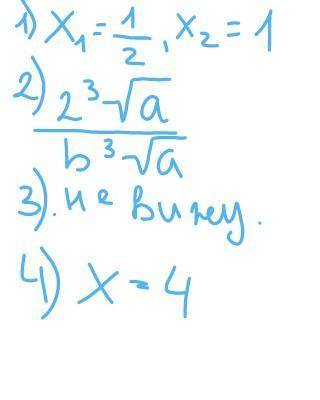 1) x₁ = 1/2, x₂ = 1
2) 2³√a / b³√a
3). не вижу.
4) x = 4